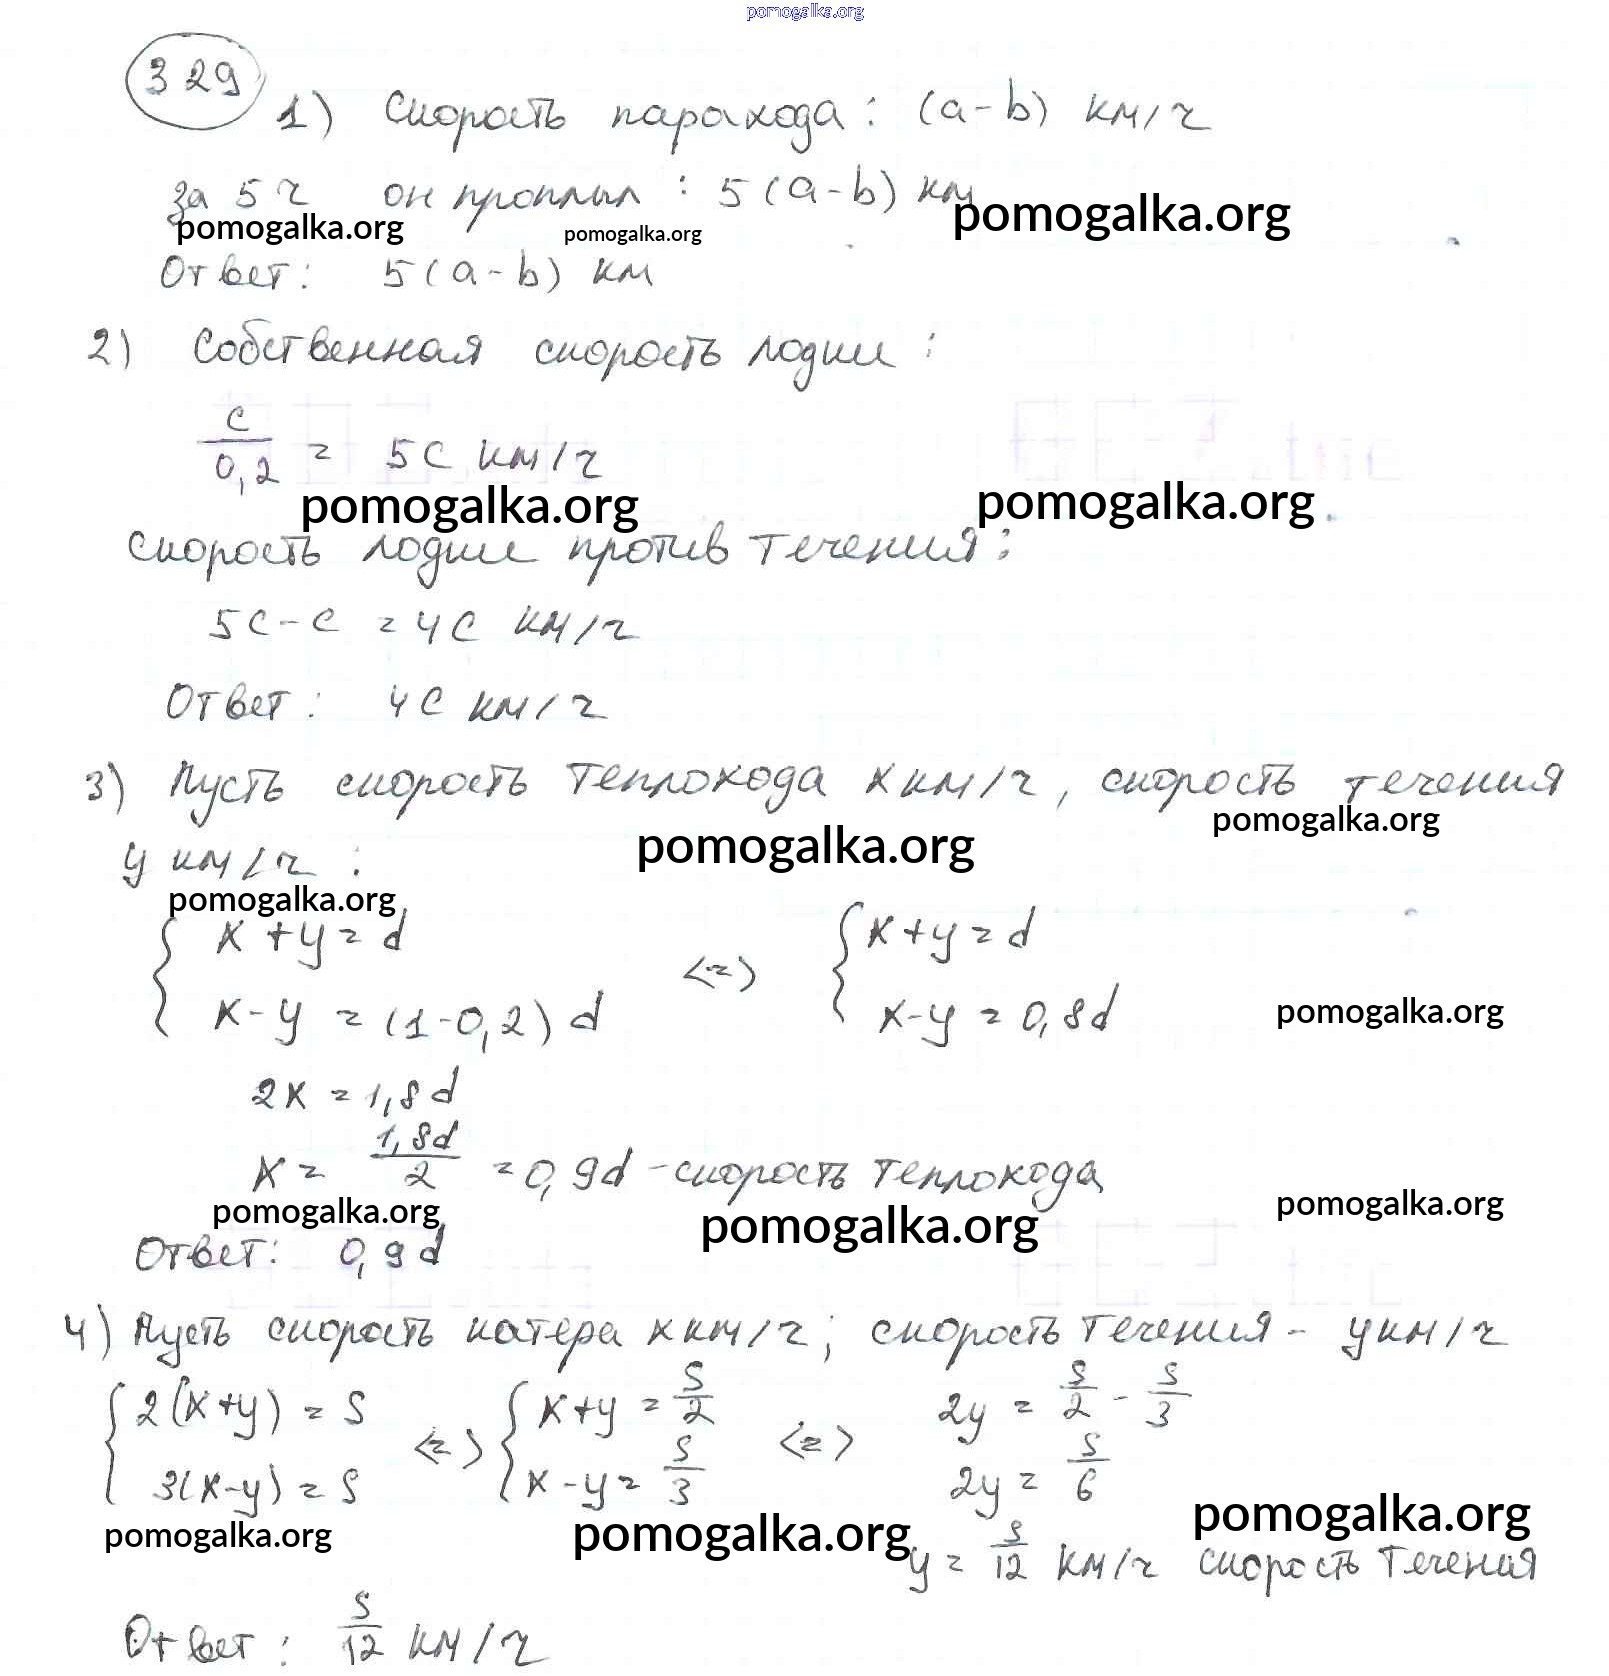 pomogalka.org
329
1) Скорость парохода: (a-b) км/ч
за 5ч он проплыл: 5(a-b) км
pomogalka.org pomogalka.org pomogalka.org
Ответ: 5(a-b) км
2) Собственная скорость лодки:
c/0,2 = 5c км/ч
pomogalka.org pomogalka.org
скорость лодки против течения:
5c-c = 4c км/ч
Ответ: 4c км/ч
3) Пусть скорость теплохода x км/ч, скорость течения
pomogalka.org
y км/ч:
pomogalka.org
pomogalka.org
{ x+y=d <=> { x+y=d
x-y = (1-0,2)d x-y = 0,8d
pomogalka.org
2x = 1,8d
x = 1,8d/2 = 0,9d - скорость теплохода
pomogalka.org pomogalka.org pomogalka.org
Ответ: 0,9d
4) Пусть скорость катера x км/ч; скорость течения - y км/ч
{ 2(x+y) = S <=> { x+y = S/2 <=> 2y = S/2 - S/3
3(x-y) = S x-y = S/3 2y = S/6
pomogalka.org pomogalka.org pomogalka.org
y = S/12 км/ч скорость течения
Ответ: S/12 км/ч